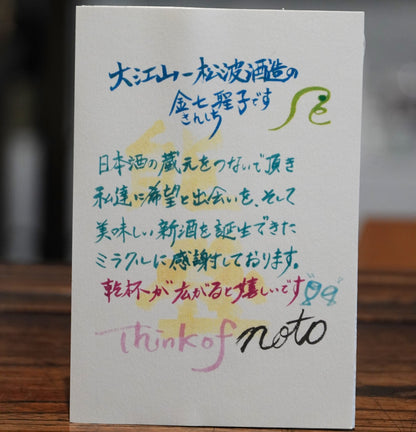 大江山一松波酒造の
金七聖子です
きんしち
日本酒の蔵元をつないで頂き
私達に希望と出会いを、そして
美味しい新酒を誕生できた
ミラクルに感謝しております。
乾杯が広がると嬉しいです
Think of noto